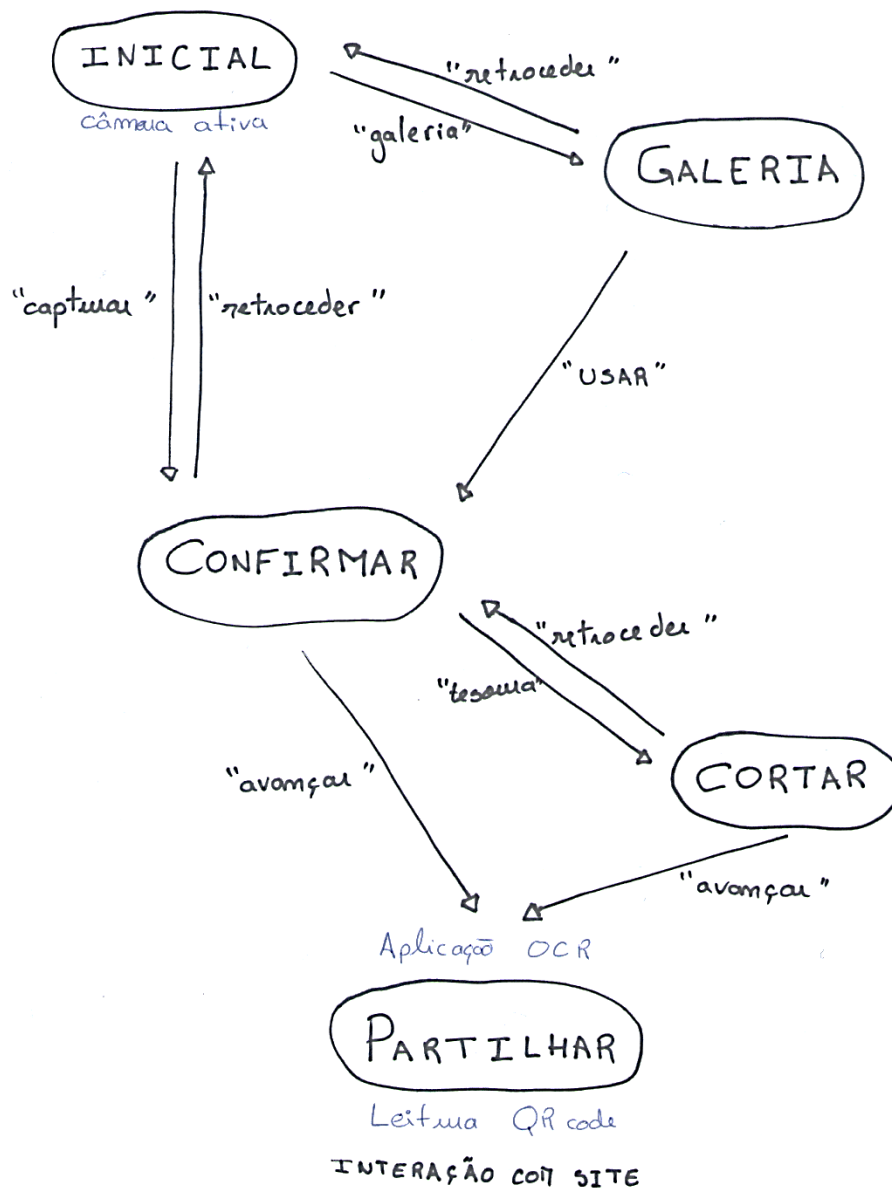 INICIAL
câmara ativa
"retroceder"
"galeria"
GALERIA
"capturar"
"retroceder"
"USAR"
CONFIRMAR
"retroceder"
"tesoura"
CORTAR
"avançar"
"avançar"
Aplicação OCR
PARTILHAR
Leitura QR code
INTERAÇÃO COM SITE